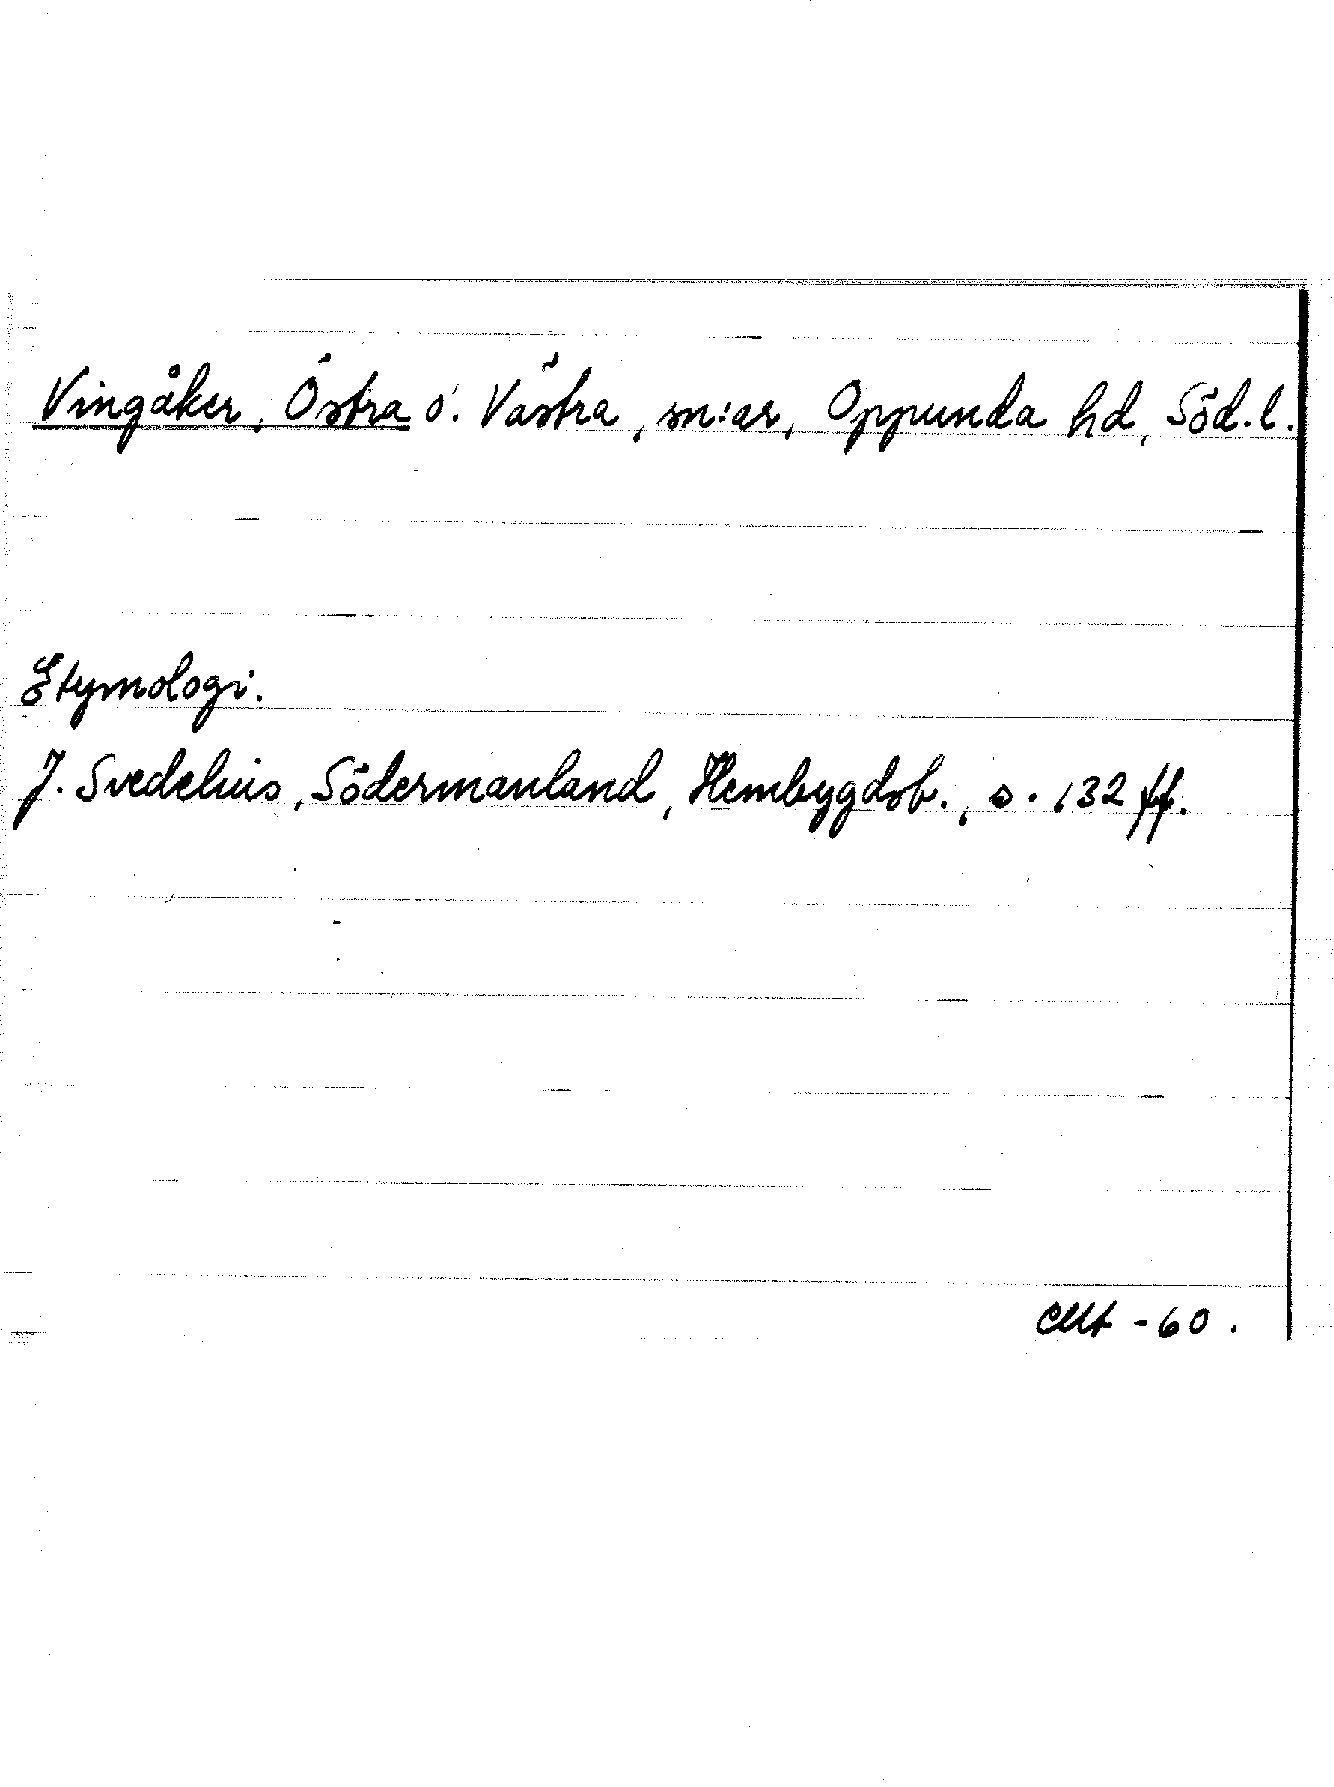 Vingåker, Östra o. Västra, sn:ar, Oppunda hd, Söd.l.
Etymologi.
J. Svedelius, Södermanland, Hembygdsb., s. 132 ff.
-60.